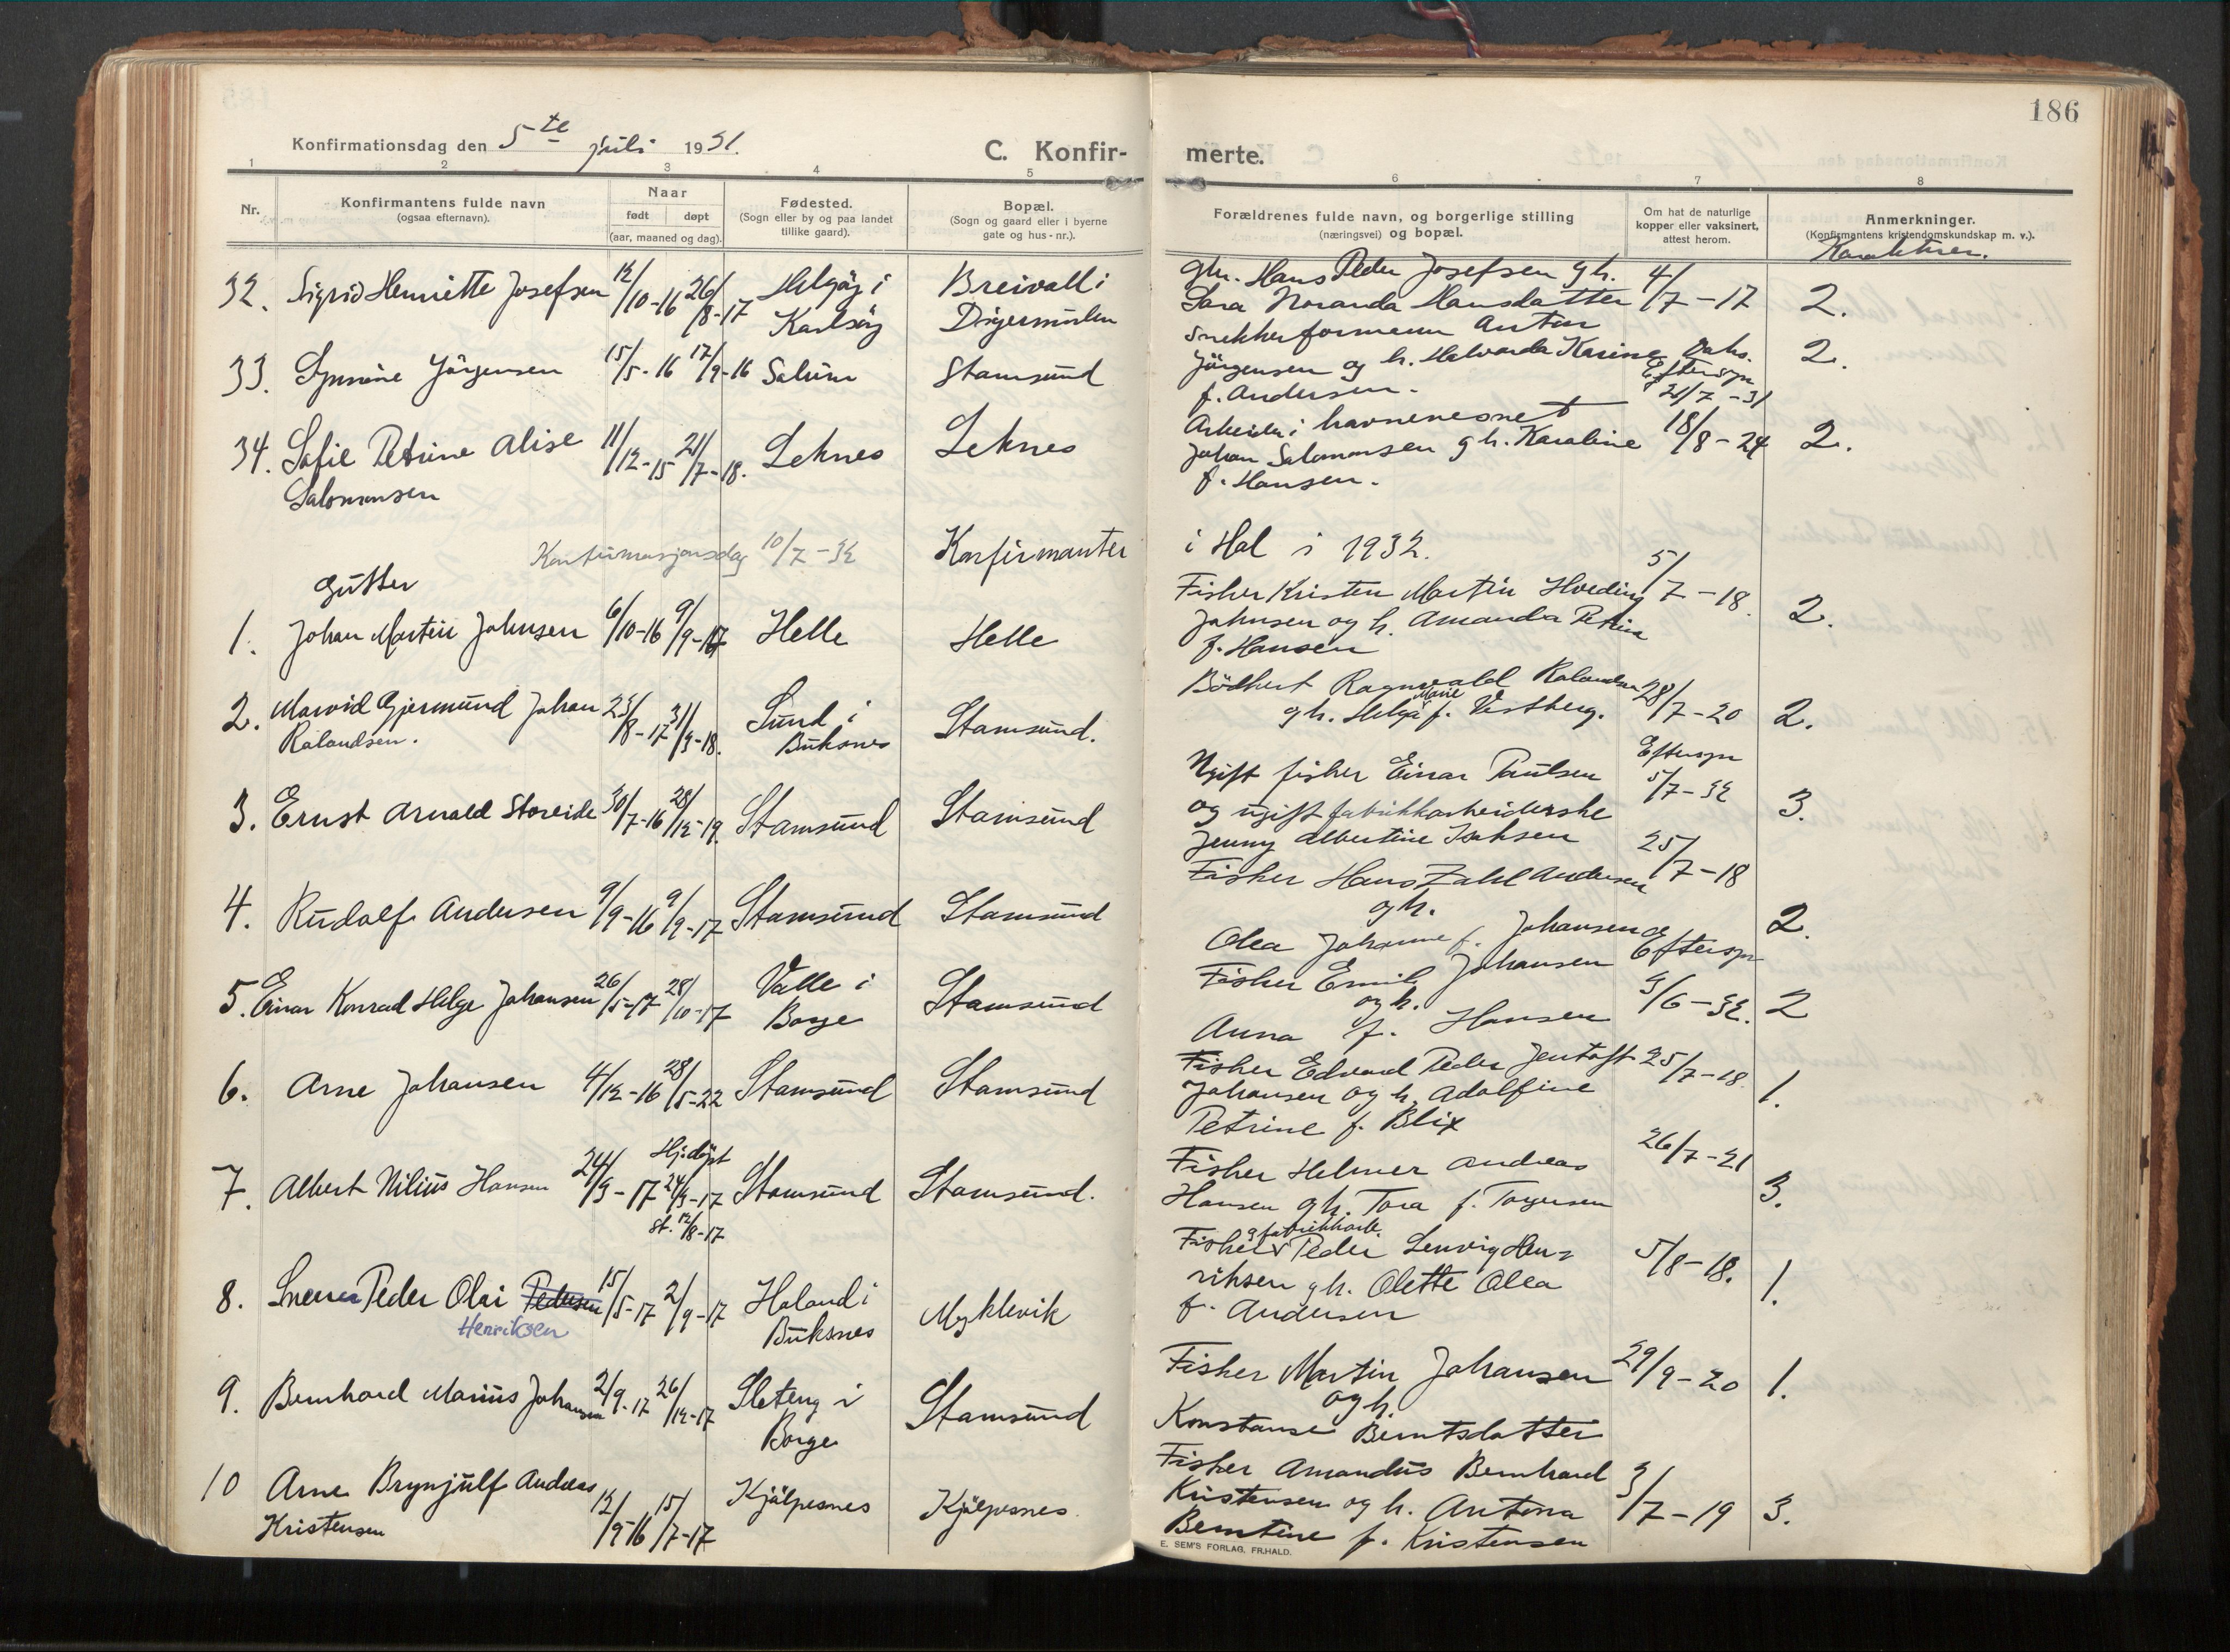 186
Konfirmationsdag den 5te juli 1931.
C. Konfir-
merte.
1 2 3 4 5 6 7 8
Nr.
Konfirmantens fulde navn
(ogsaa efternavn).
Naar
født døpt
(aar, maaned og dag).
Fødested.
(Sogn eller by og paa landet
tillike gaard).
Bopæl.
(Sogn og gaard eller i byerne
gate og hus-nr.).
Forældrenes fulde navn, og borgerlige stilling
(næringsvei) og bopæl.
Om hat de naturlige
kopper eller vaksinert,
attest herom.
Anmerkninger.
(Konfirmantens kristendomskundskap m. v.).
Karakterer.
32. Sigrid Henriette Josefsen 12/10-16 26/8-17
Helgöy i
Karlsöy
Breivoll i
Digermulen
gbr. Hans Peder Josefsen g h.
Sara Noranda Hansdatter
4/7-17
2.
33. Jörgensen 15/5-16 17/9-16
Stamsund
Snekkerformann Anton
Jörgensen og h. Halvarda Karine
f. Andersen.
Vaks.
Eftersyn
21/7-31
2.
34. Sofie Petrine Alise
Salomonsen
11/12-15 21/7-18.
Leknes
Leknes
Arbeider i havnevesnet
Johan Salomonsen g h. Karoline
f. Hansen.
18/8-24
2.
Konfirmasjonsdag 10/7-32
Konfirmanter i Hol i 1932.
Gutter
1. Johan Martin Johnsen 6/10-16 9/9-17
Helle
Helle
Fisker Kristen Martin Hveding
Johnsen og h. Amanda Petrine
f. Hansen
5/7-18.
2.
2. Marvid Gjermund Johan
Rolandsen.
23/8-17 31/3-18.
Sund i
Buksnes
Stamsund.
Ragnvald Rolandsen
g h. Helga Marie f. Vestberg.
28/7-20
2.
3. Ernst Arnold Storeide 30/7-16 28/12-19.
Stamsund
Stamsund
Ugift fisker Einar Paulsen
og ugift fabrikkarbeiderske
Jenny Albertine
Eftersyn
5/7-32
3.
4. Rudolf Andersen 9/9-16 9/9-17
Stamsund
Stamsund
Fisker Hans Zahl Andersen
og h.
Olea Johanne f. Johansen
25/7-18
2.
5. Einar Konrad Helge Johansen 26/5-17 28/10-17
Valle i
Borge
Stamsund
Fisker Emil Johansen
og h.
Anna f. Hansen
Eftersyn
3/6-32.
2
6. Arne Johansen 4/12-16 28/5-22
Stamsund
Stamsund
Fisker Edvard Peder Jentoft
Johansen og h. Adolfine
Petrine f. Blix
25/7-18.
1.
7. Albert Nilius Hansen 24/3-17
Hj.döpt
24/3-17
st. 12/8-17
Stamsund
Stamsund.
Fisker Helmer Andreas
Hansen g h. Tora f. Torgersen
26/7-21
3.
8. Sverre Peder Olai Pedersen
Henriksen
15/5-17 2/9-17
Holand i
Buksnes
Myklevik
g fabrikkarb.
Fisker Peder Lenvig Hen-
riksen g h. Olette Olea
f. Andersen
5/8-18.
1.
9. Bernhard Marius Johansen 2/9-17 26/12-17
Sleteng i
Borge
Stamsund
Fisker Martin Johansen
og h.
Konstanse Berntsdatter
29/9-20
1.
10 Arne Brynjulf Andreas
Kristensen
12/9-16 15/7-17
Kjölpesnes
Kjölpesnes.
Fisker Amandus Bernhard
Kristensen og h. Antona
Berntine f. Kristensen
3/7-19
3.
E. SEM'S FORLAG, FR.HALD.